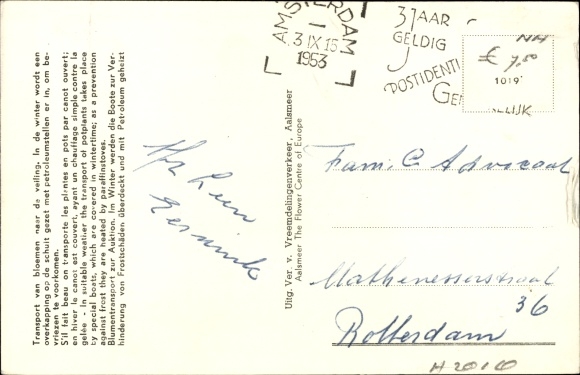 Transport van bloemen naar de veiling. In de winter wordt een
overkapping op de schuit gezet met petroleumstellen er in, om be-
vriezen te voorkomen.
S'il fait beau on transporte les plantes en pots par canot ouvert;
en hiver le canot est couvert, ayant un chauffage simple contre la
gelée - In suitable weather the transport of potplants takes place
by special boats, which are covered in wintertime; as a prevention
against frost they are heated by paraffinstoves.
Blumentransport zur Auktion. Im Winter werden die Boote zur Ver-
hinderung von Frostschäden überdeckt und mit Petroleum geheizt
Uitg. Ver. v. Vreemdelingenverkeer, Aalsmeer
Aalsmeer The Flower Centre of Europe
AMSTERDAM
3 IX 15
1953
3 JAAR
GELDIG
POSTIDENTI
GE
LIJK
NH
€ 7,50
1019
Fam. C. Advocaat
Mathenesserstraat
36
Rotterdam
H 2010